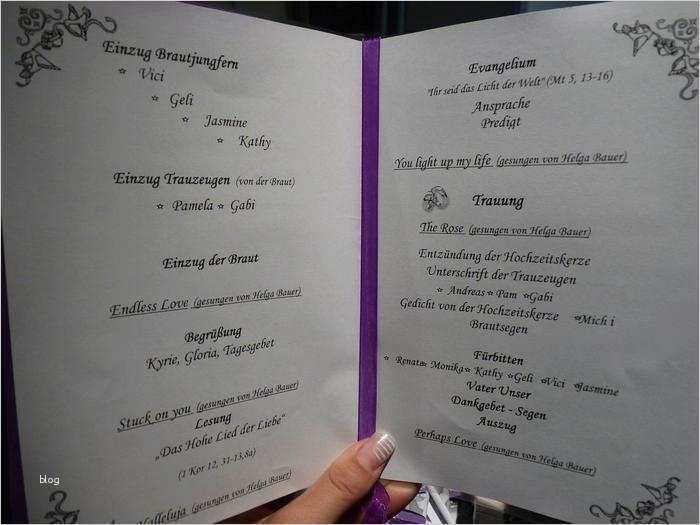 Einzug Brautjungfern
☆ Vici
☆ Geli
☆ Jasmine
☆ Kathy
Einzug Trauzeugen (von der Braut)
☆ Pamela ☆ Gabi
Einzug der Braut
Endless Love (gesungen von Helga Bauer)
Begrüßung
Kyrie, Gloria, Tagesgebet
Stuck on you (gesungen von Helga Bauer)
Lesung
„Das Hohe Lied der Liebe“
(1 Kor 12, 31-13,8a)
Halleluja (gesungen von Helga Bauer)
blog
Evangelium
"Ihr seid das Licht der Welt" (Mt 5, 13-16)
Ansprache
Predigt
You light up my life (gesungen von Helga Bauer)
Trauung
The Rose (gesungen von Helga Bauer)
Entzündung der Hochzeitskerze
Unterschrift der Trauzeugen
☆ Andreas ☆ Pam ☆Gabi
Gedicht von der Hochzeitskerze ☆Mich i
Brautsegen
Fürbitten
☆ Renate☆ Monika☆ Kathy ☆Geli ☆Vici ☆Jasmine
Vater Unser
Dankgebet - Segen
Auszug
Perhaps Love (gesungen von Helga Bauer)